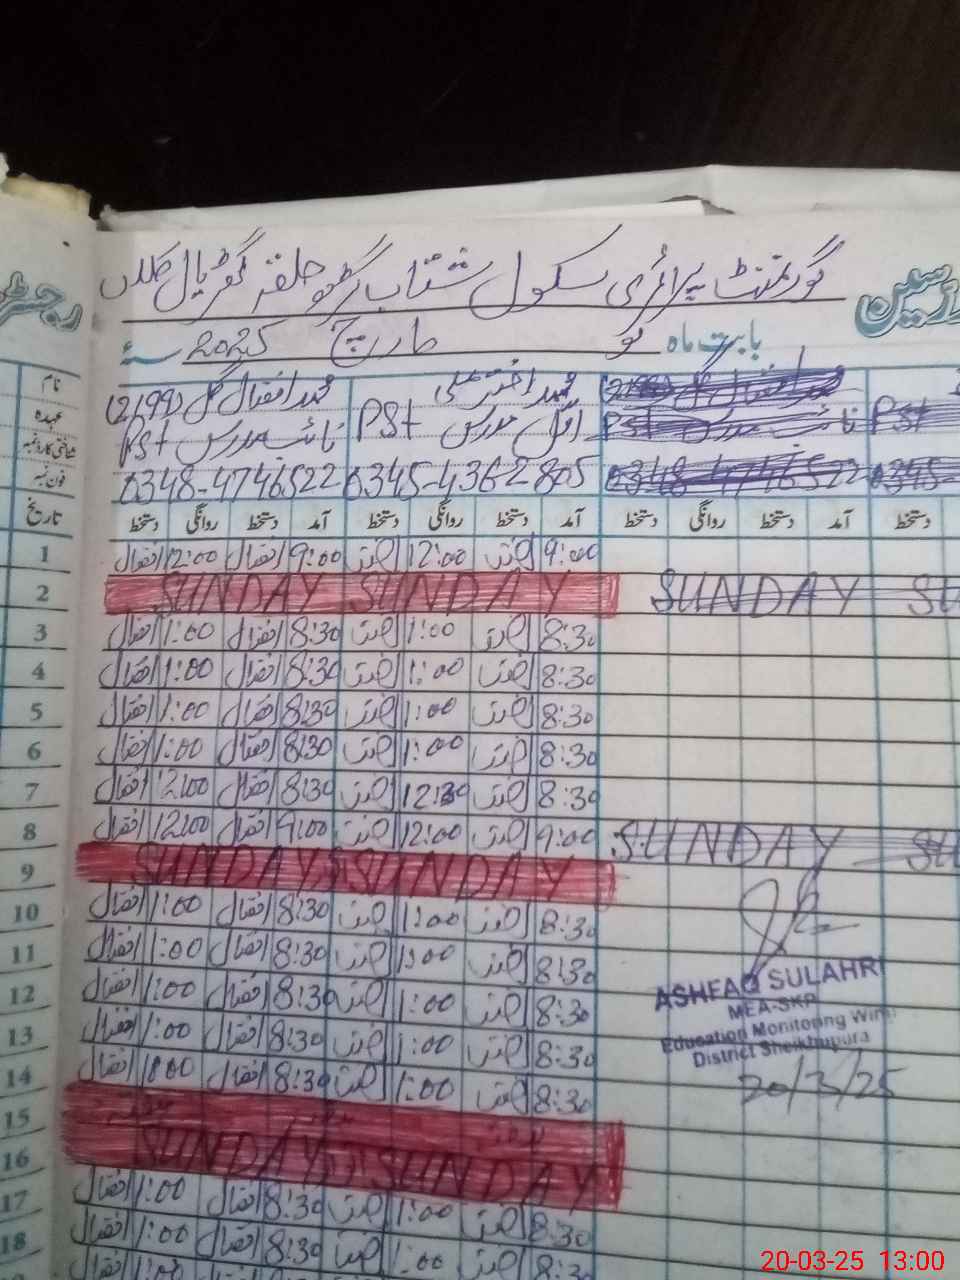 گورنمنٹ پرائمری سکول شتاب گڑھ حلقہ گھڑیال کلاں
بابت ماہ مارچ 2025 سنۂ
محمد اختر علی محمد افضال گل (2699)
اول مدرس PST نائب مدرس PST
0345-4362805 0348-4746522
نام
عہدہ
شناختی کارڈ نمبر
فون نمبر
تاریخ
آمد دستخط روانگی دستخط آمد دستخط روانگی دستخط آمد دستخط روانگی دستخط دستخط
1 9:00 اختر 12:00 اختر 9:00 افضال 12:00 افضال
2 SUNDAY SUNDAY SUNDAY SU
3 8:30 اختر 1:00 اختر 8:30 افضال 1:00 افضال
4 8:30 اختر 1:00 اختر 8:30 افضال 1:00 افضال
5 8:30 اختر 1:00 اختر 8:30 افضال 1:00 افضال
6 8:30 اختر 1:00 اختر 8:30 افضال 1:00 افضال
7 8:30 اختر 12:30 اختر 8:30 افضال 12:00 افضال
8 9:00 اختر 12:00 اختر 9:00 افضال 12:00 افضال
SUNDAY SU
9 SUNDAY SUNDAY
10 8:30 اختر 1:00 اختر 8:30 افضال 1:00 افضال
11 8:30 اختر 1:00 اختر 8:30 افضال 1:00 افضال
12 8:30 اختر 1:00 اختر 8:30 افضال 1:00 افضال
13 8:30 اختر 1:00 اختر 8:30 افضال 1:00 افضال
14 8:30 اختر 1:00 اختر 8:30 افضال 1:00 افضال
15
16 SUNDAY SUNDAY
17 8:30 اختر 1:00 اختر 8:30 افضال 1:00 افضال
18 8:30 اختر 1:00 اختر 8:30 افضال 1:00 افضال
ASHFAQ SULAHRI
MEA-SKP
Education Monitoring Wing
District Sheikhupura
20/3/25
20-03-25 13:00